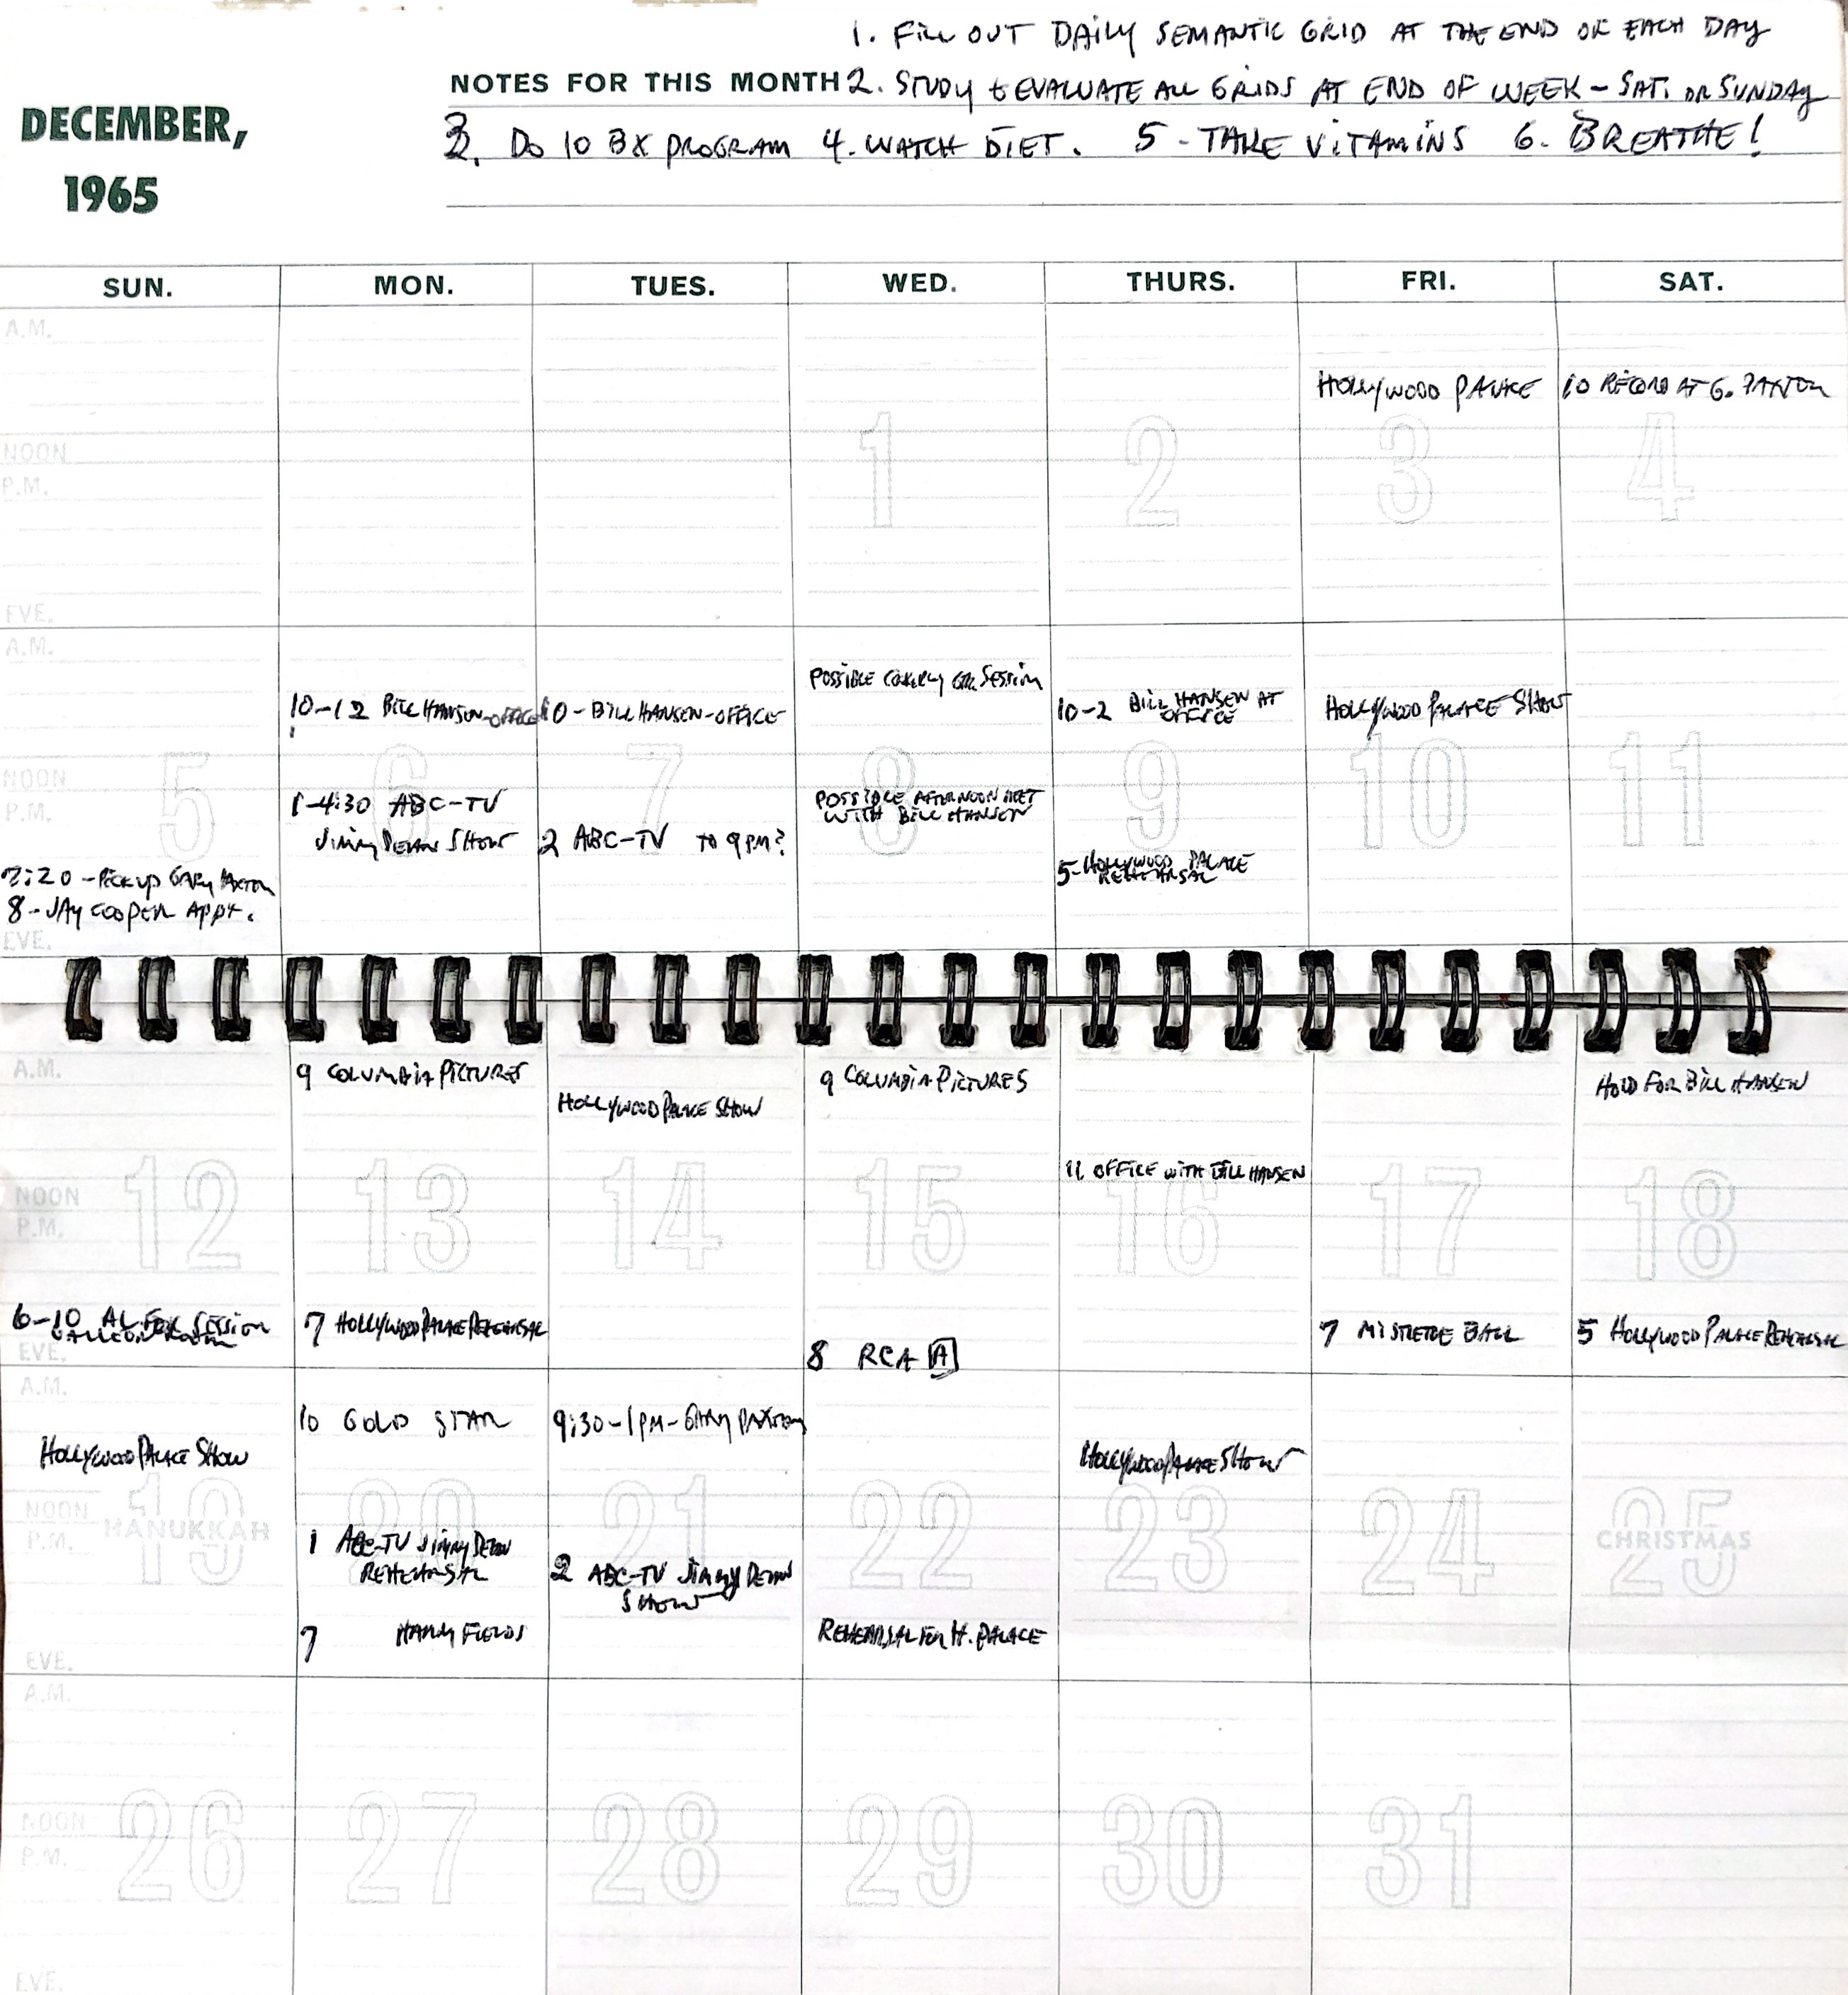 1. FILL OUT DAILY SEMANTIC GRID AT THE END OF EACH DAY
NOTES FOR THIS MONTH 2. STUDY & EVALUATE ALL GRIDS AT END OF WEEK – SAT. OR SUNDAY
DECEMBER,
1965
3. DO 10 BX PROGRAM 4. WATCH DIET. 5 - TAKE VITAMINS 6. BREATHE!
SUN. MON. TUES. WED. THURS. FRI. SAT.
A.M.
HOLLYWOOD PALACE
10 RECORD AT G. PAXTON
NOON
P.M.
1 2 3 4
EVE.
A.M.
POSSIBLE SESSION
10-12 BILL HANSEN-OFFICE
10 - BILL HANSEN-OFFICE
10-2 BILL HANSEN AT
OFFICE
HOLLYWOOD PALACE SHOW
NOON
P.M.
5 6 7 8 9 10 11
1-4:30 ABC-TV
JIMMY DEAN SHOW
2 ABC-TV TO 9 PM?
POSSIBLE AFTERNOON MEET
WITH BILL HANSEN
5-HOLLYWOOD PALACE
REHEARSAL
7:20 - PICK UP GARY PAXTON
8 - JAY COOPER APPT.
EVE.
A.M.
9 COLUMBIA PICTURES
HOLLYWOOD PALACE SHOW
9 COLUMBIA PICTURES
HOLD FOR BILL HANSEN
11 OFFICE WITH BILL HANSEN
NOON
P.M.
12 13 14 15 16 17 18
6-10 AL FOX SESSION
7 HOLLYWOOD PALACE REHEARSAL
8 RCA A
7 MISTLETOE BALL
5 HOLLYWOOD PALACE REHEARSAL
EVE.
A.M.
HOLLYWOOD PALACE SHOW
10 GOLD STAR
9:30-1 PM - GARY PAXTON
HOLLYWOOD PALACE SHOW
NOON
P.M.
19 20 21 22 23 24 25
HANUKKAH
CHRISTMAS
1 ABC-TV JIMMY DEAN
REHEARSAL
2 ABC-TV JIMMY DEAN
SHOW
7 HARRY FIELDS
REHEARSAL FOR H. PALACE
EVE.
A.M.
NOON
P.M.
26 27 28 29 30 31
EVE.